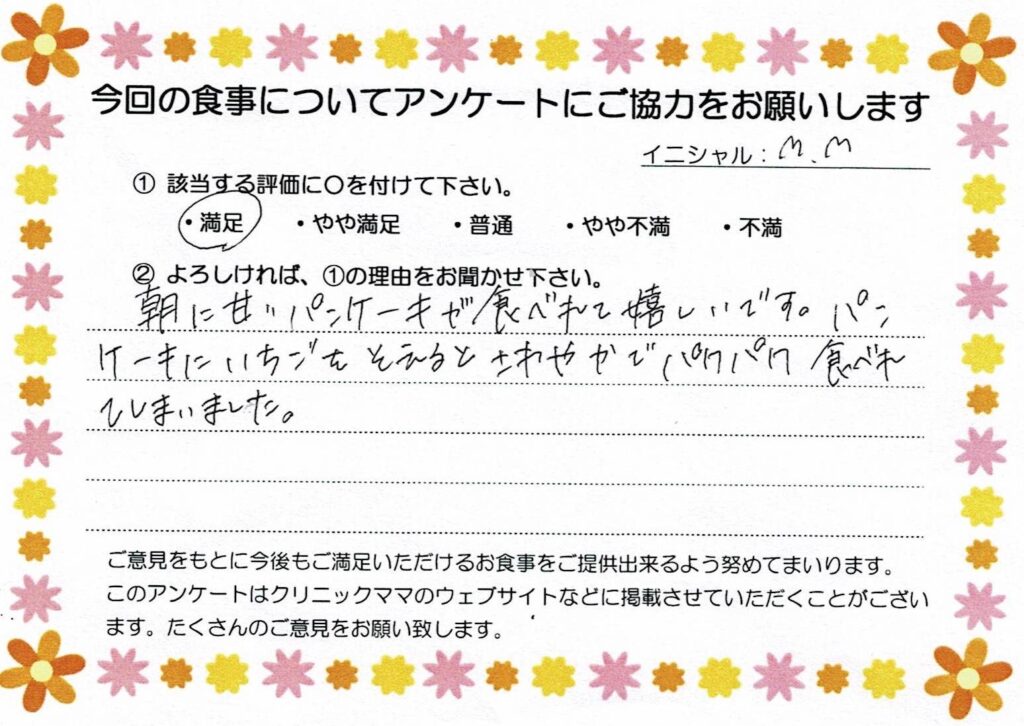 今回の食事についてアンケートにご協力をお願いします
イニシャル：M.M
① 該当する評価に〇を付けて下さい。
・満足 ・やや満足 ・普通 ・やや不満 ・不満
② よろしければ、①の理由をお聞かせ下さい。
朝に甘いパンケーキが食べれて嬉しいです。パン
ケーキにいちごをそえるとさわやかでパクパク食べれ
てしまいました。
ご意見をもとに今後もご満足いただけるお食事をご提供出来るよう努めてまいります。
このアンケートはクリニックママのウェブサイトなどに掲載させていただくことがござい
ます。たくさんのご意見をお願い致します。